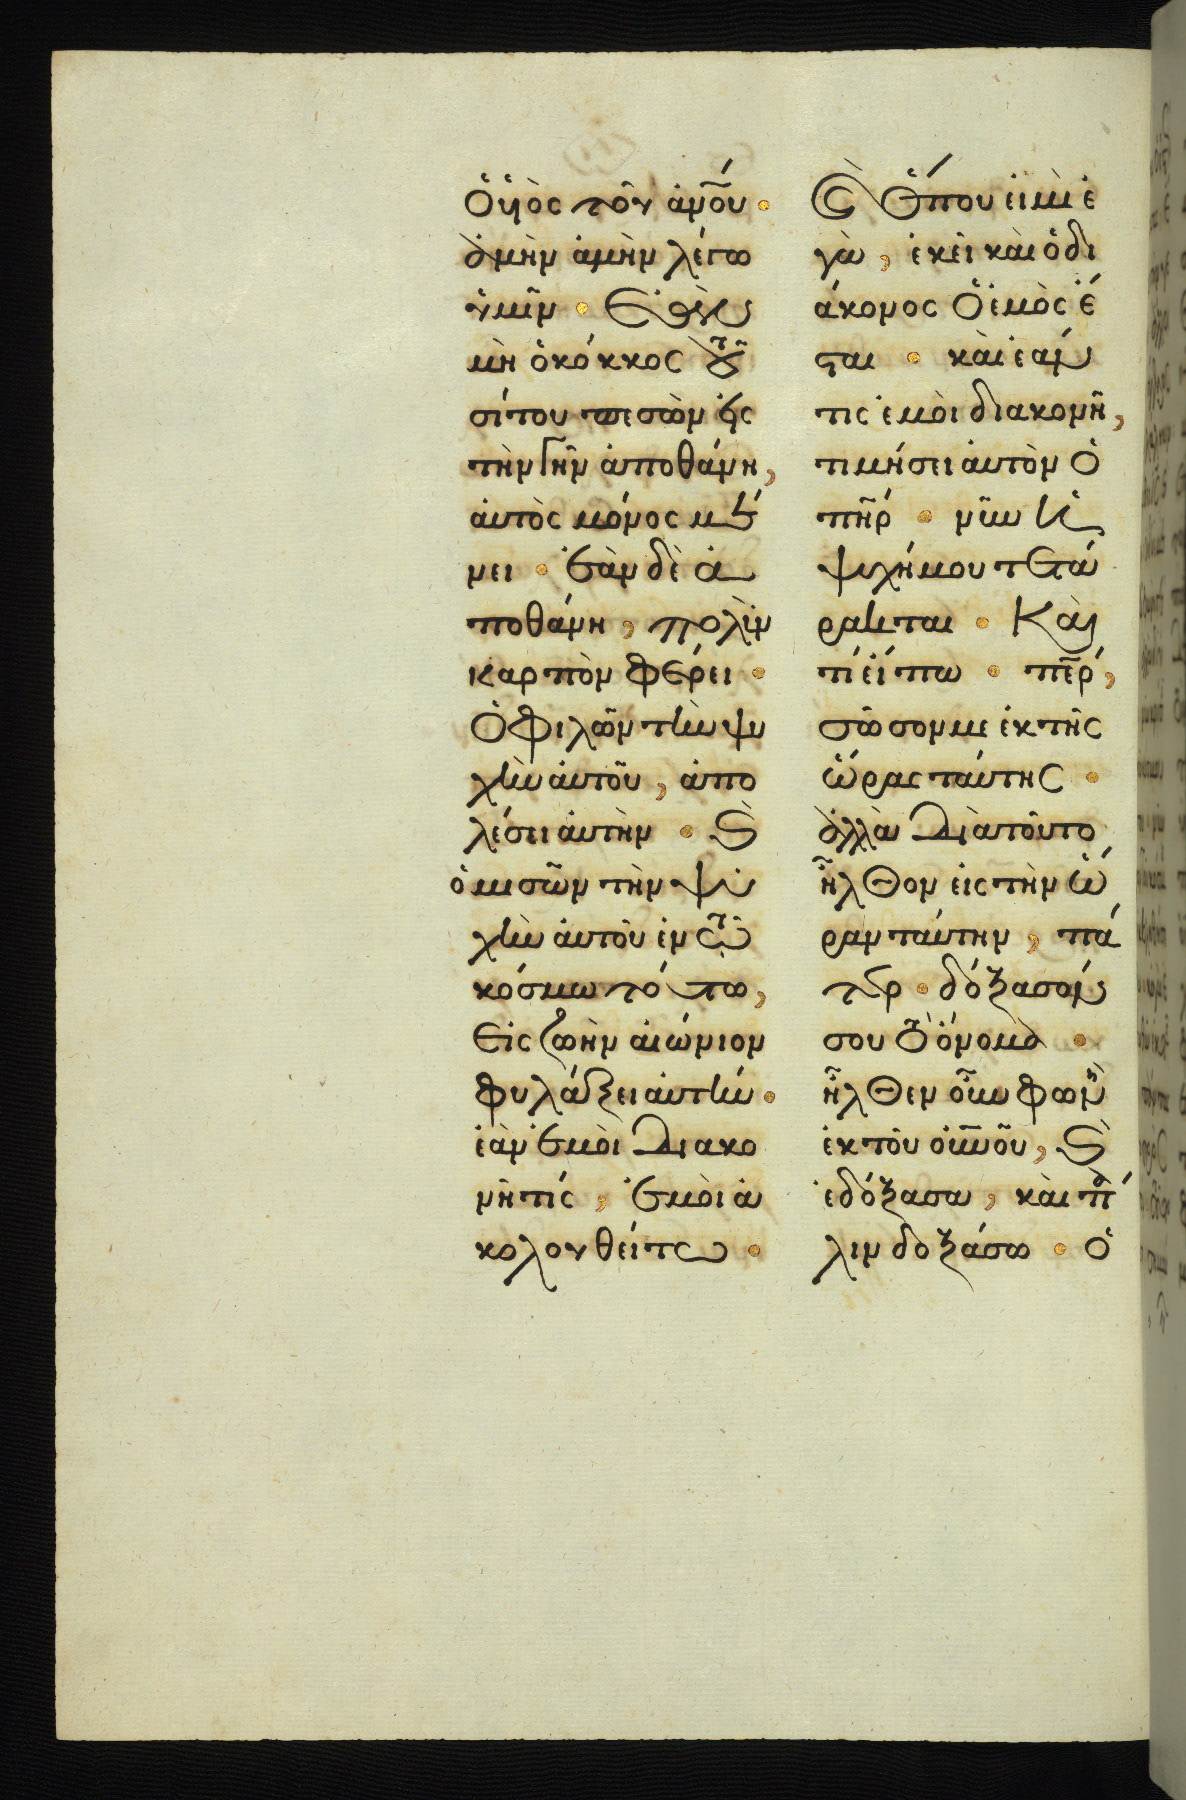 ὁ ὑιὸς τοῦ ἀν̅ου·
ἀμὴν ἀμὴν λέγω
ὑμῖν· Ἐὰν
μὴ ὁ κόκκος τοῦ
σίτου πεσὼν εἰς
τὴν γῆν ἀποθάνη,
ἀυτὸς μόνος μέ
νει· ἐὰν δὲ ἀ
ποθάνη, πολὺν
καρπὸν φέρει·
Ὁ φιλῶν τὴν ψυ
χὴν ἀυτοῦ, ἀπο
λέσει ἀυτὴν· Ϗ
ὁ μισῶν τὴν ψυ
χὴν ἀυτοῦ ἐν τῶ
κόσμω τούτω,
Εἰς ζωὴν αἰώνιον
φυλάξει ἀυτήν·
ἐὰν ἐμοὶ διακο
νῆ τίς, ἐμοὶ ἀ
κολουθείτω·
Ϗ Ὅπου εἰμὶ ἐ
γὼ, ἐκεῖ καὶ ὁ δι
άκονος ὁ ἐμὸς ἔ
σται· καὶ ἐάν
τις ἐμοὶ διακονῆ,
τιμήσει ἀυτὸν ὁ
πη̅ρ· νῦν ἡ
ψυχή μου τετά
ρακται· Καὶ
τί εἴπω· πε̅ρ,
σῶσον με ἐκ τῆς
ὥρας ταύτης·
ἀλλὰ διὰ τοῦτο
ἦλθον εἰς τὴν ὥ
ραν ταύτην, πά
τερ· δόξασόν
σου τὸ ὄνομα·
ἦλθεν οὖν φωνὴ
ἐκ τοῦ οὐ̅νοῦ, Ϗ
ἐδόξασα, καὶ πά
λιν δοξάσω· ὁ